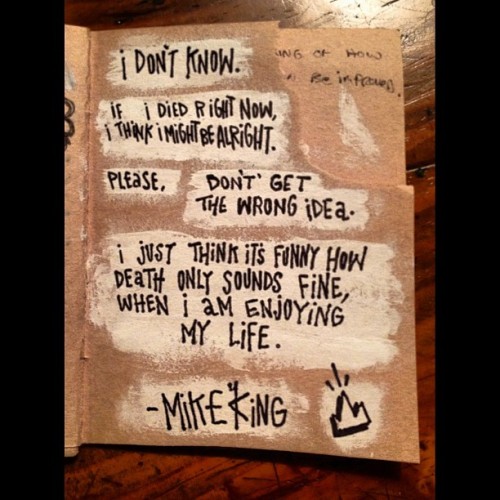 i DON'T KNOW.
ING OF HOW
BE iMPROVED.
iF i DiED RiGHT NOW,
i THiNK i MiGHT BE ALRiGHT.
PLEaSE,
DON'T' GET
THE WRONG iDEa.
i JUST THiNK iT'S FUNNY HOW
DEaTH ONLY SOUNDS FiNE,
WHEN i aM ENJOYiNG
MY LiFE.
-MiKE KiNG